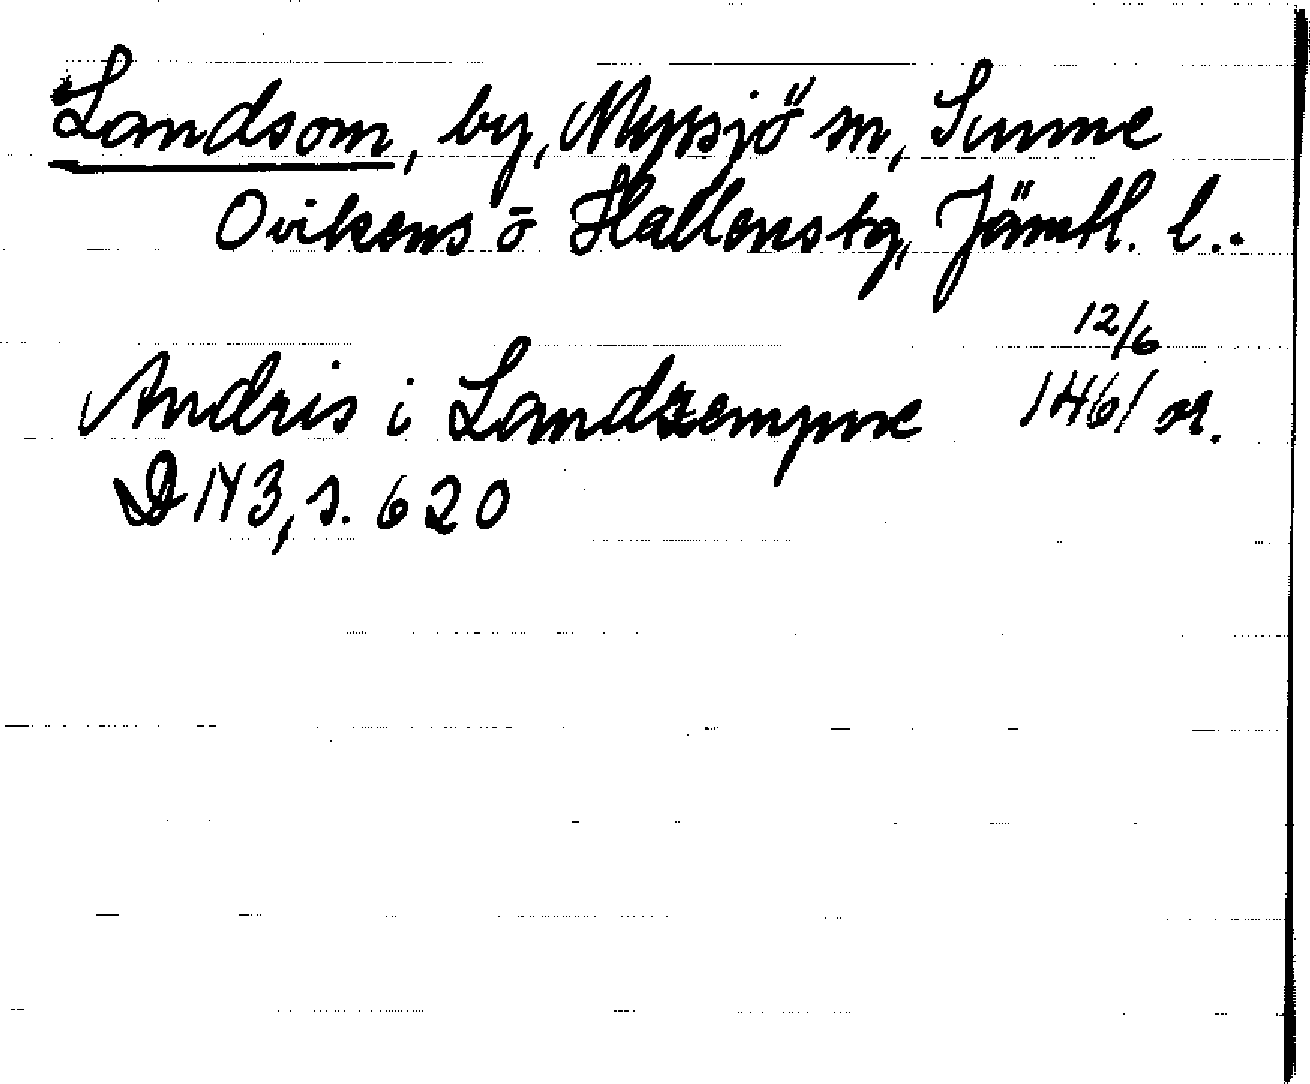 Landsom, by, Myssjö sn, Sunne
Ovikens o Hallens tg, Jämtl. l..
12/6
Andris i Landzempne 1461 or.
D 143, s. 620